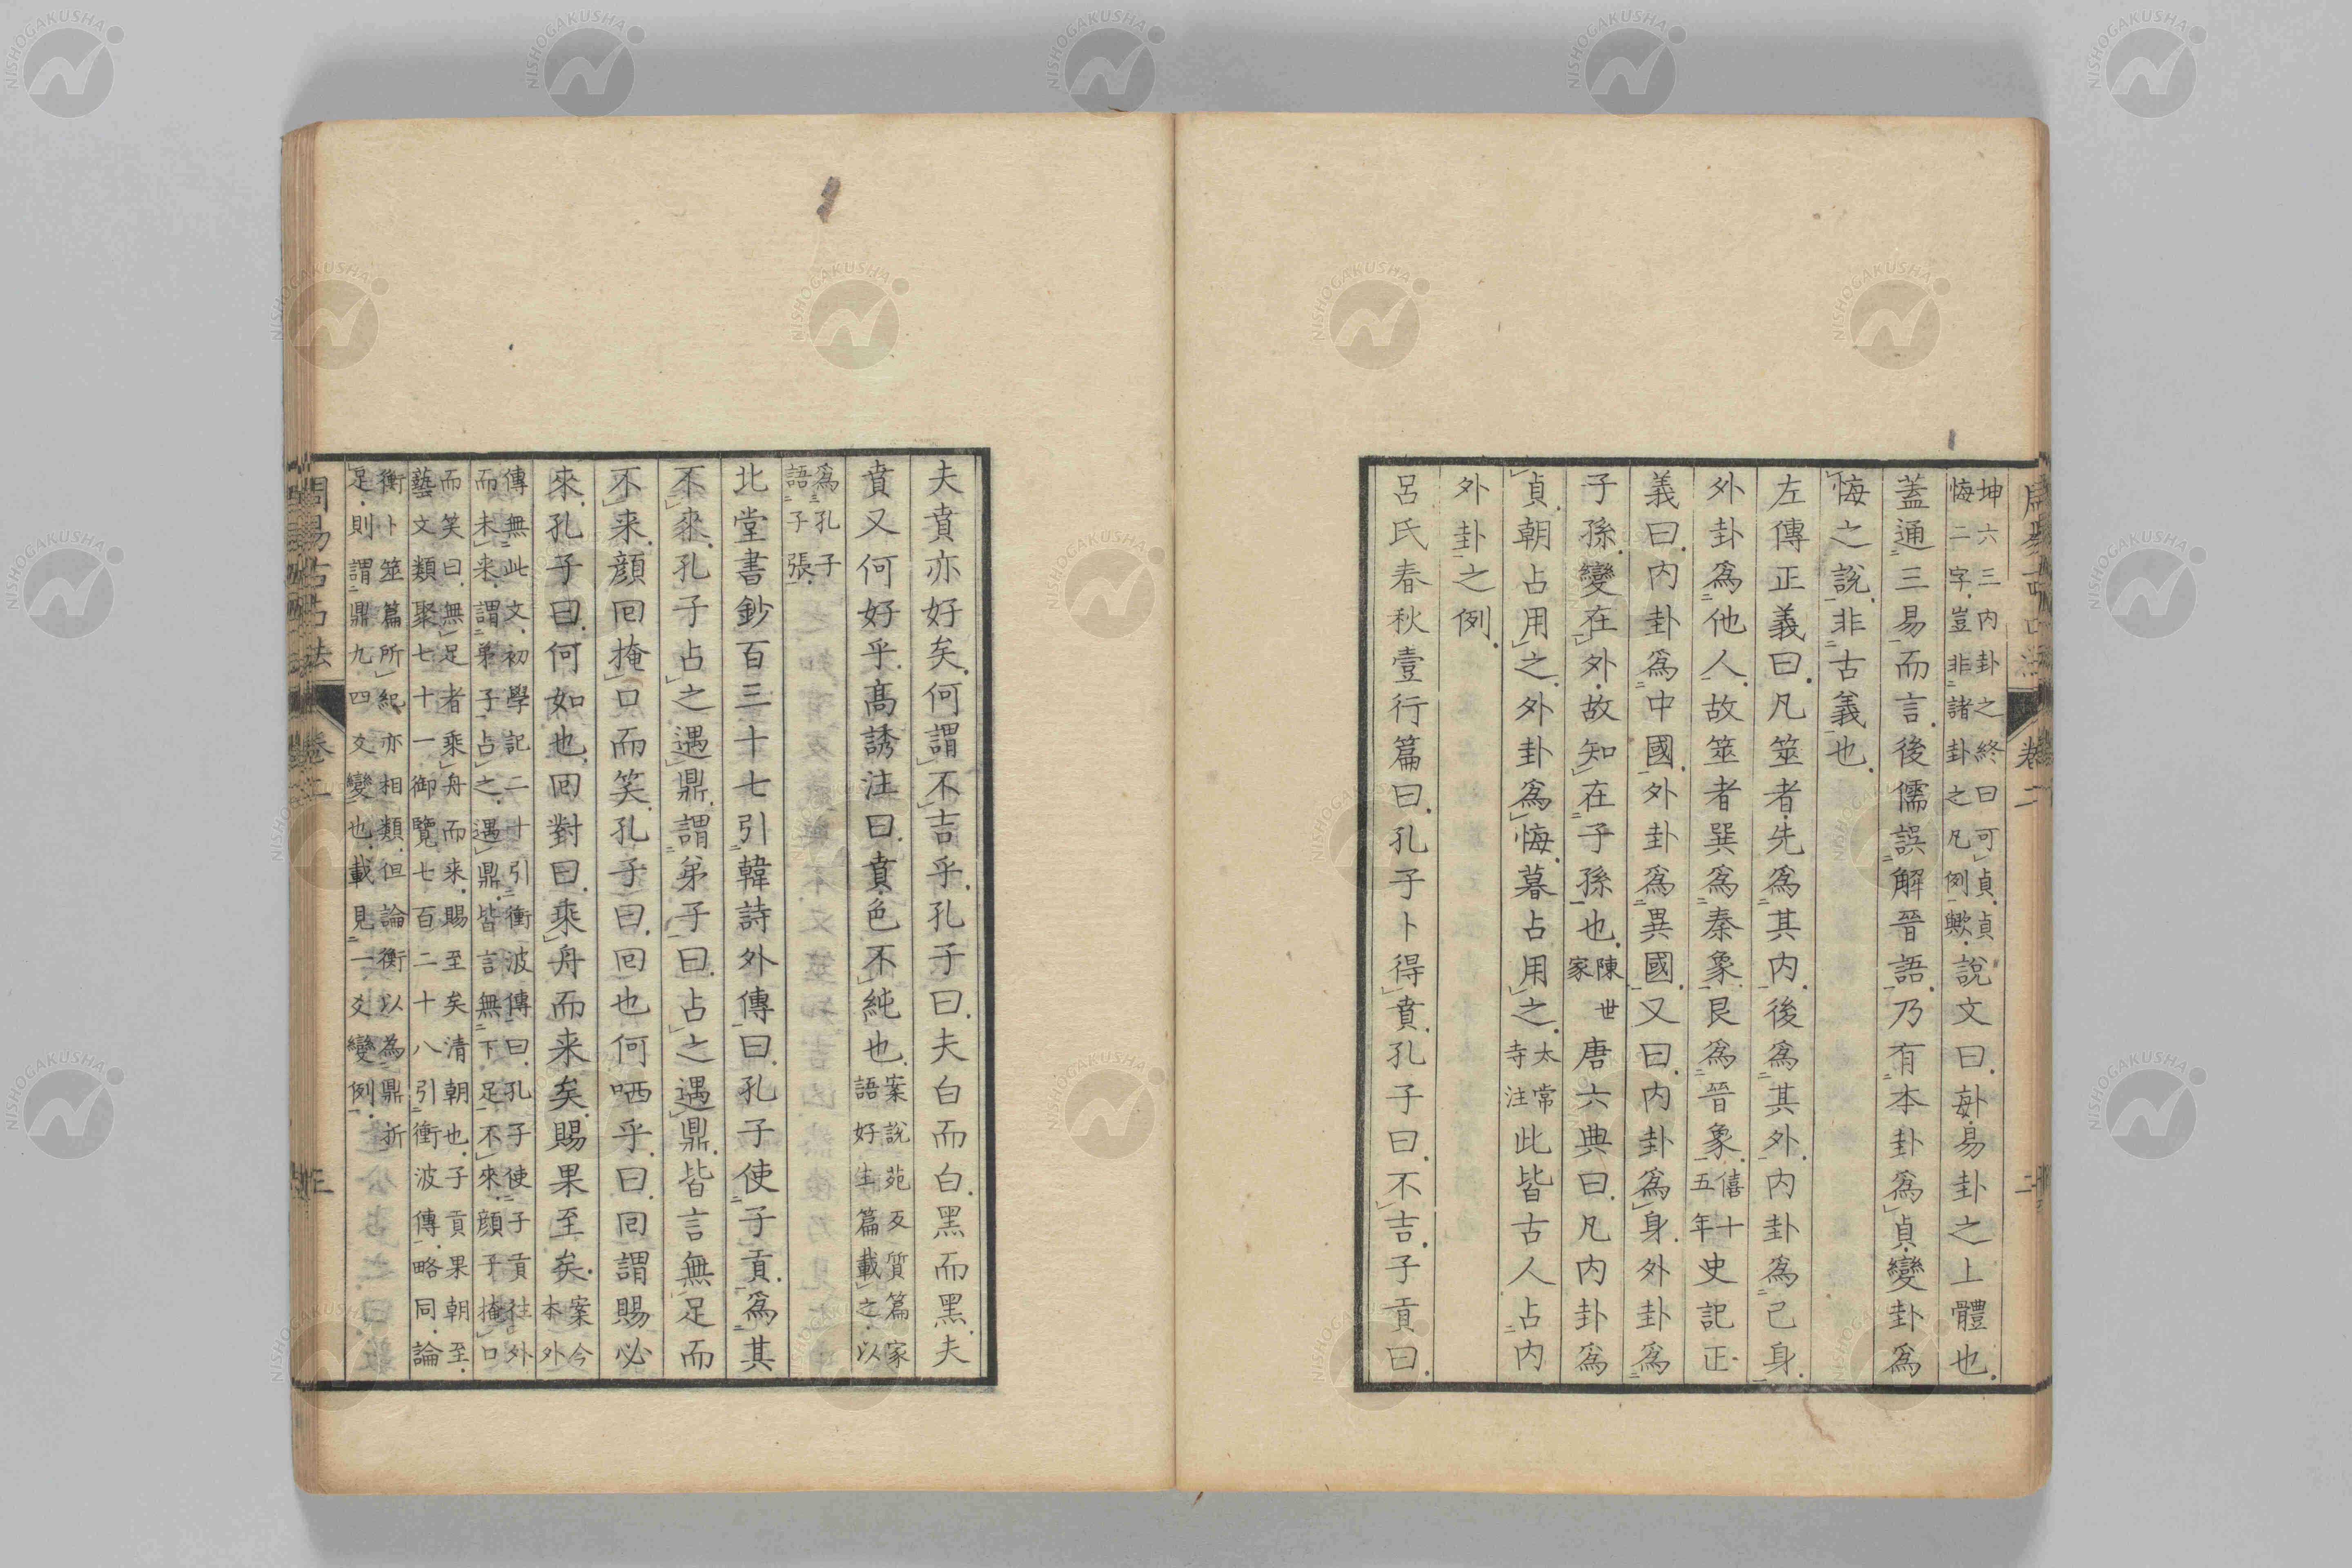 坤六三内卦之終曰可貞貞
悔二字豈非諸卦之凡例歟説文曰𠧩易卦之上體也
蓋通三易而言後儒誤解晉語乃有本卦爲貞變卦爲
悔之説非古義也
左傳正義曰凡筮者先爲其内後爲其外内卦爲己身
外卦爲他人故筮者巽爲秦象艮爲晉象僖十五年史記正
義曰内卦爲中國外卦爲異國又曰内卦爲身外卦爲
子孫變在外故知在子孫也陳世家唐六典曰凡内卦爲
貞朝占用之外卦爲悔暮占用之太常寺注此皆古人占内
外卦之例
呂氏春秋壹行篇曰孔子卜得賁孔子曰不吉子貢曰
夫賁亦好矣何謂不吉乎孔子曰夫白而白黑而黑夫
賁又何好乎高誘注曰賁色不純也案説苑反質篇家
語好生篇載之以
爲孔子
語子張
北堂書鈔百三十七引韓詩外傳曰孔子使子貢爲其
不來孔子占之遇鼎謂弟子曰占之遇鼎皆言無足而
不来顔回掩口而笑孔子曰回也何哂乎曰回謂賜必
來孔子曰何如也回對曰乘舟而来矣賜果至矣案今
本外
傳無此文初學記二十引衝波傳曰孔子使子貢往外
而未来謂弟子占之遇鼎皆言無下足不來顔子掩口
而笑曰無足者乘舟而来賜至矣清朝也子貢果朝至
藝文類聚七十一御覽七百二十八引衝波傳略同論
衡卜筮篇所紀亦相類但論衡以為鼎折
足則謂鼎九四爻變也載見一爻變例
周易古占法 卷二 三